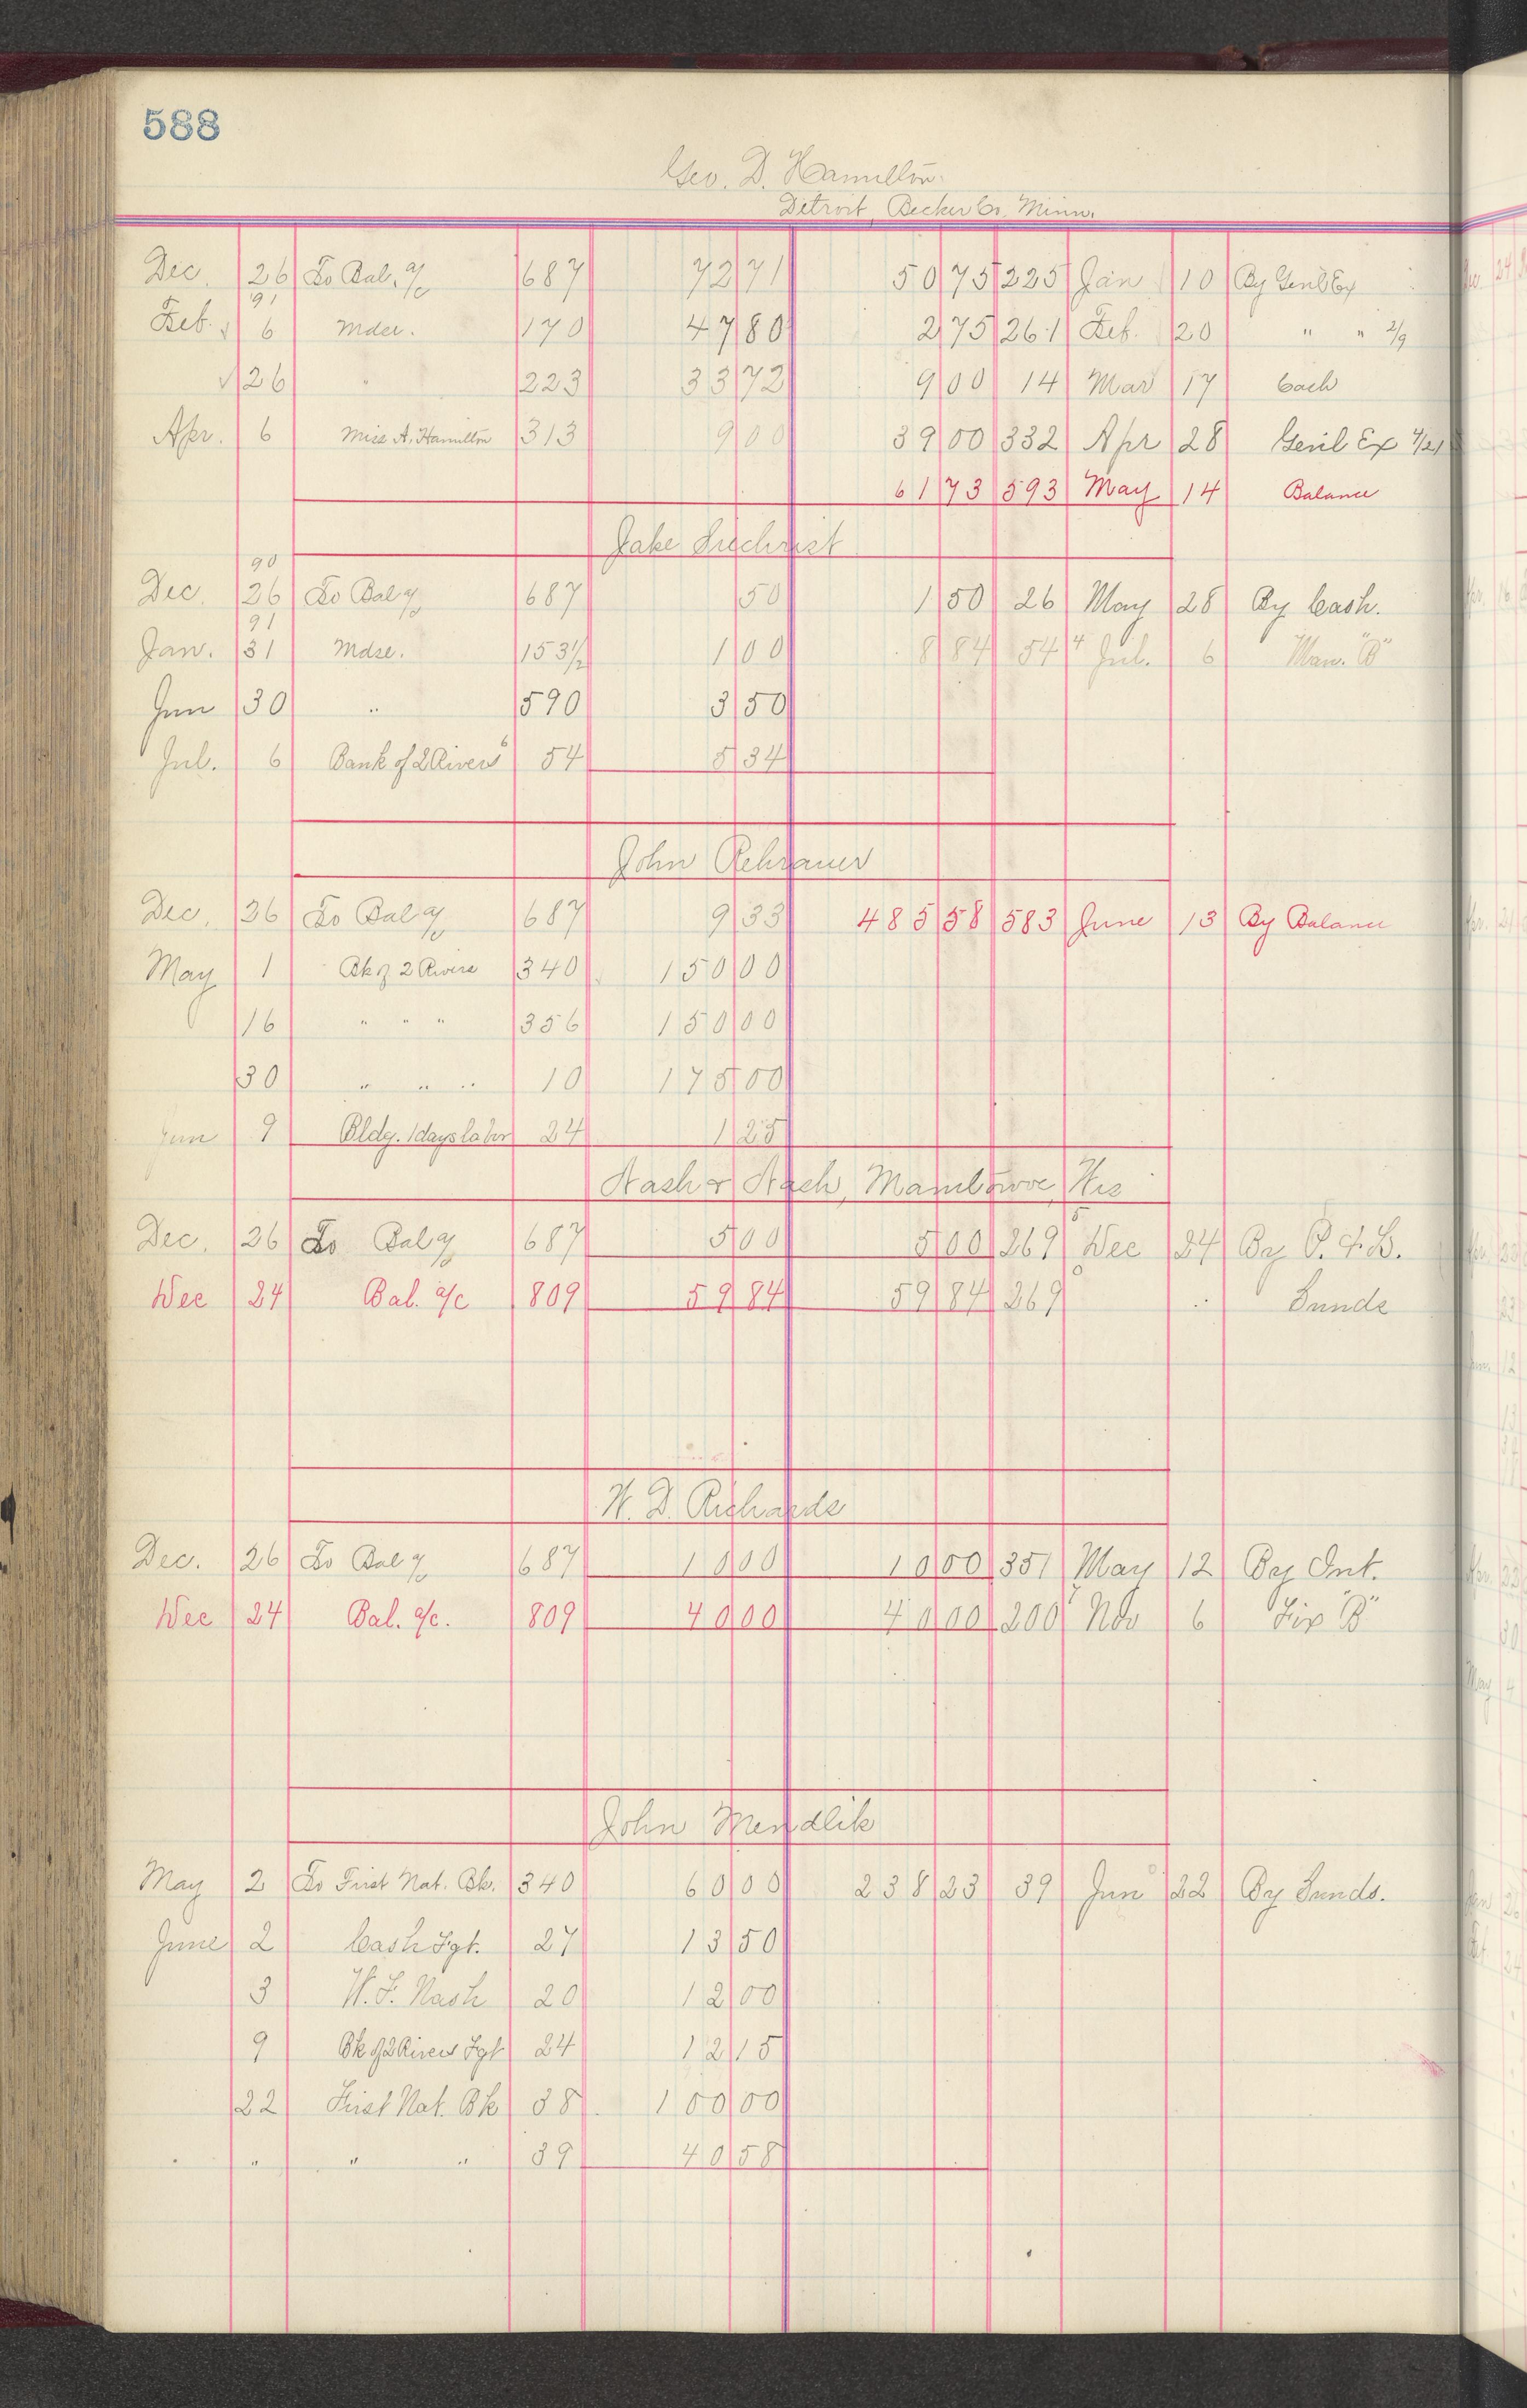 588
Geo. D. Hamilton.
Detroit, Becker Co. Minn.
Dec. 26 To Bal. a/c 687 72 71 50 75 225 Jan 10 By Genl Ex
91
Feb. 6 Mdse. 170 47 80 2 75 261 Feb. 20 " " 2/9
26 " 223 33 72 9 00 14 Mar 17 Cash
Apr. 6 Miss A. Hamilton 313 9 00 39 00 332 Apr 28 Genl Ex 4/21
61 73 593 May 14 Balance
Jake
90
Dec. 26 To Bal a/c 687 50 1 50 26 May 28 By Cash.
91
Jan. 31 Mdse. 153 1/2 1 00 8 84 54 4 Jul. 6 Man. "B"
Jun 30 " 590 3 50
Jul. 6 Bank of 2 Rivers 6 54 5 34
John Rehrauer
Dec. 26 To Bal a/c 687 9 33 485 58 583 June 13 By Balance
May 1 Bk of 2 Rivers 340 150 00
16 " " " 356 150 00
30 " " " 10 175 00
Jun 9 Bldg. 1 days labor 24 1 25
Nash & Nash, Manitowoc, Wis
Dec. 26 To Bal a/c 687 5 00 5 00 269 5 Dec 24 By P. & L.
Dec 24 Bal. a/c 809 59 84 59 84 269 " Sunds
W. D. Richards
Dec. 26 To Bal a/c 687 10 00 10 00 351 May 12 By Int.
Dec 24 Bal. a/c. 809 40 00 40 00 200 Nov 6 Fix "B"
John Mendlik
May 2 To First Nat. Bk. 340 60 00 238 23 39 Jun 22 By Sunds.
June 2 Cash Fgt. 27 13 50
3 W. F. Nash 20 12 00
9 Bk of 2 Rivers Fgt 24 12 15
22 First Nat. Bk 38 100 00
" " " " 39 40 58